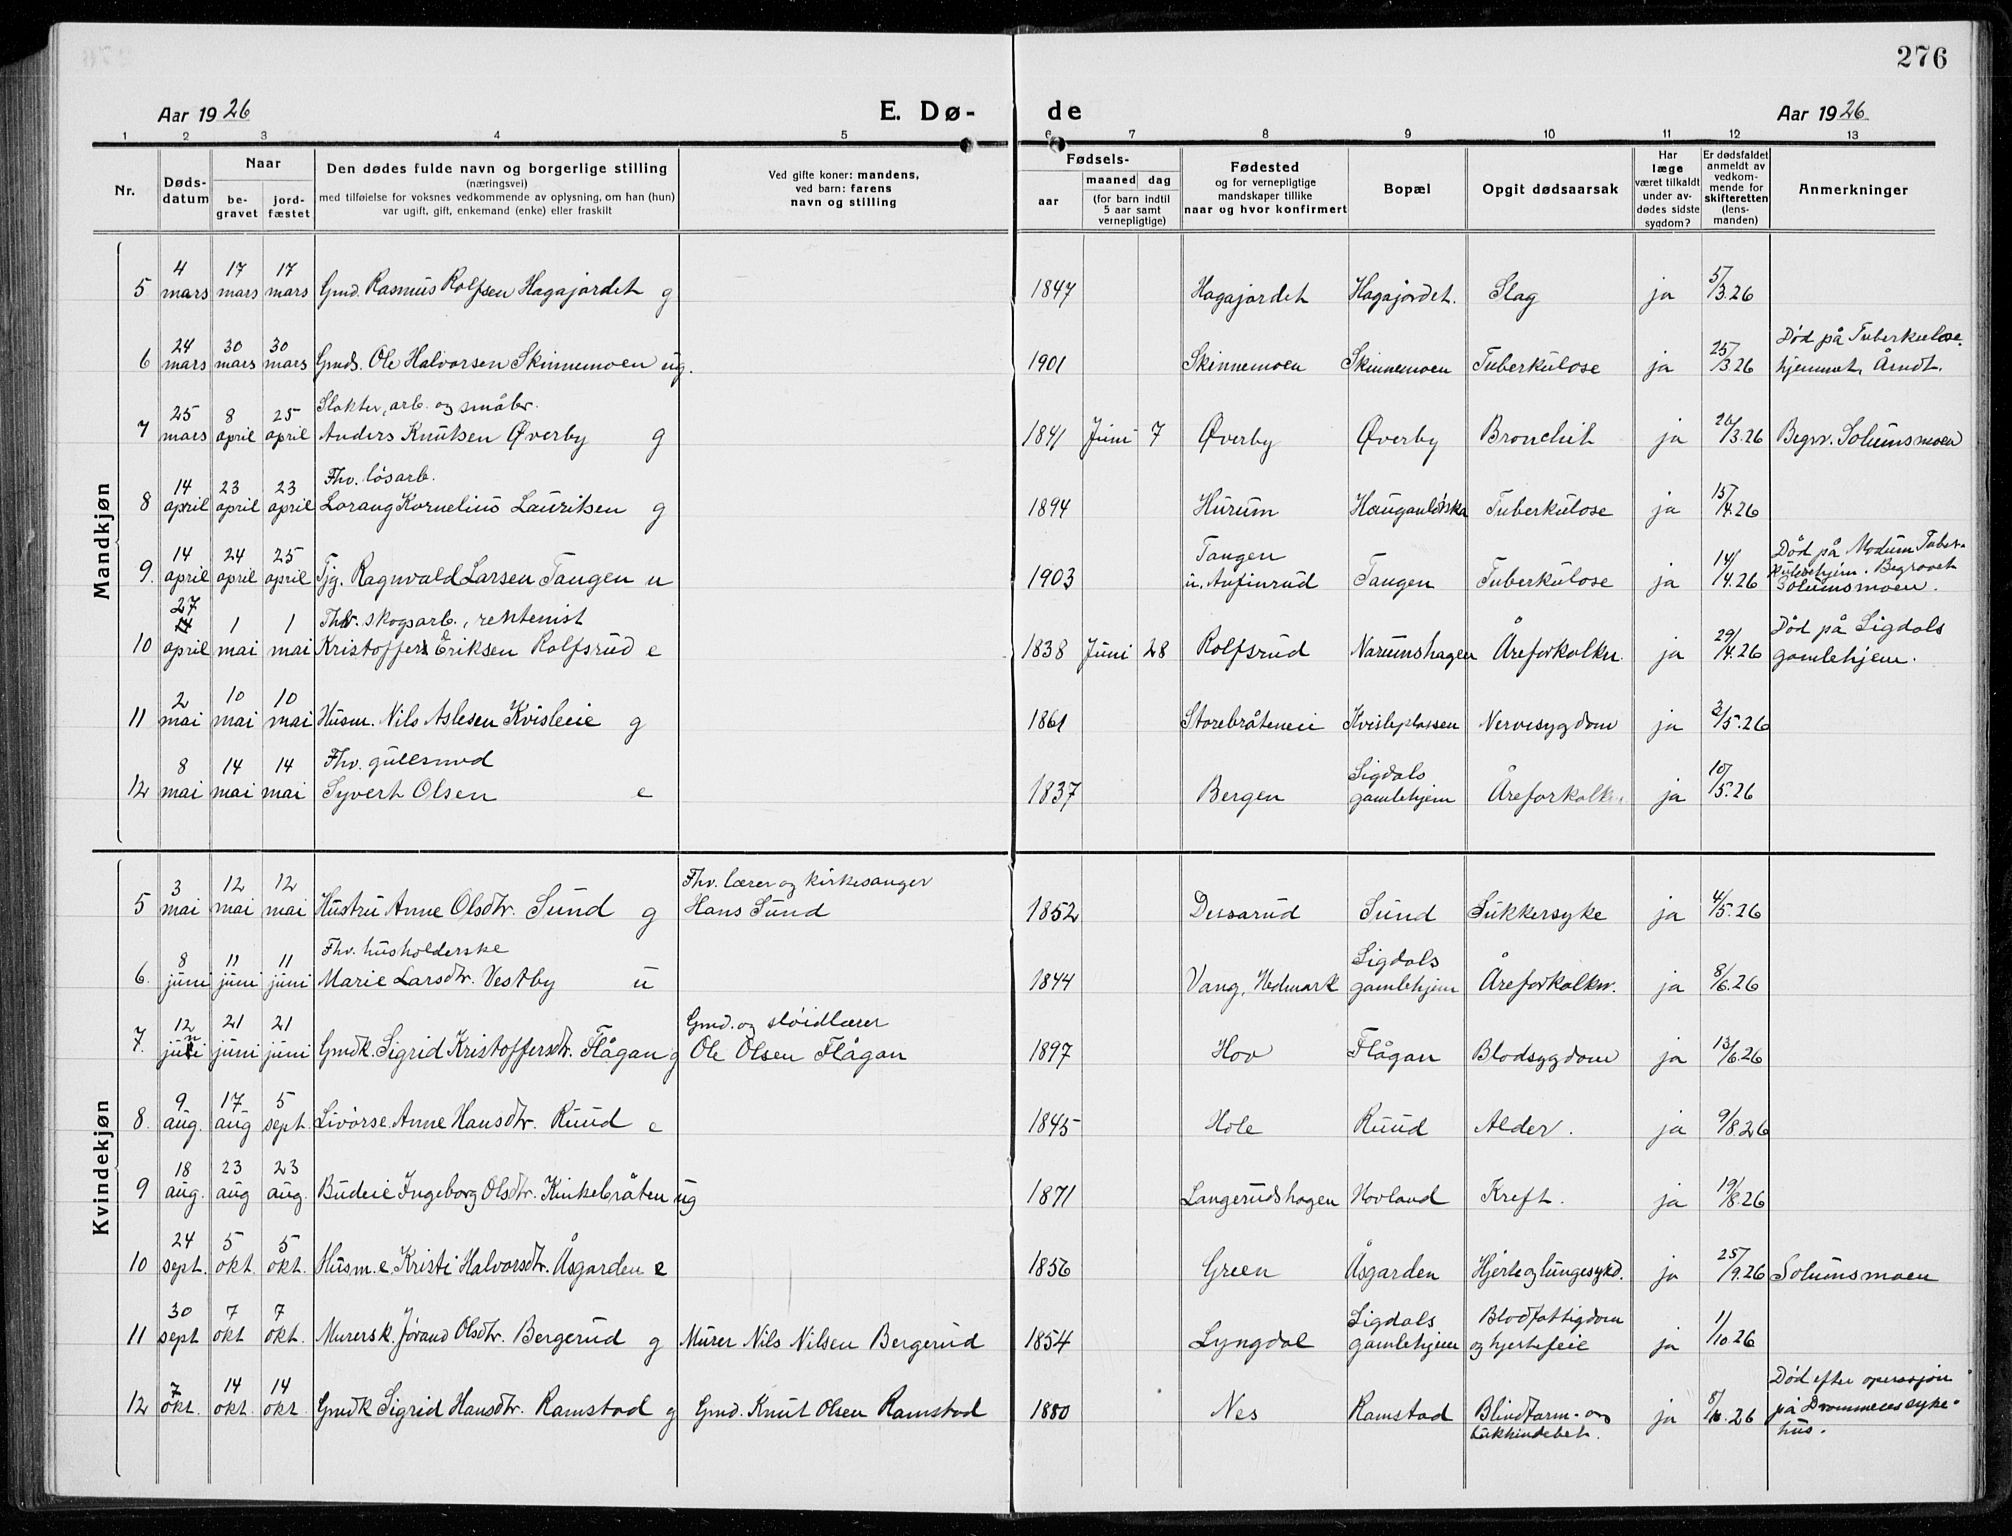 276
Aar 1926 E. Dø- de Aar 1926
1 2 3 4 5 6 7 8 9 10 11 12 13
Nr. Døds-datum Naar be-gravet jord-fæstet Den dødes fulde navn og borgerlige stilling (næringsvei) med tilføielse for voksnes vedkommende av oplysning, om han (hun) var ugift, gift, enkemand (enke) eller fraskilt Ved gifte koner: mandens, ved barn: farens navn og stilling Fødsels- aar maaned dag (for barn indtil 5 aar samt vernepligtige) Fødested og for vernepligtige mandskaper tillike naar og hvor konfirmert Bopæl Opgit dødsaarsak Har læge været tilkaldt under av-dødes sidste sygdom? Er dødsfaldet anmeldt av vedkom-mende for skifteretten (lens-manden) Anmerkninger
Mandkjøn
5 4 mars 17 mars 17 mars Gmd. Rasmus Rolfsen Hagajordet g 1847 Hagajordet Hagajordet. Slag ja 5/3.26
6 24 mars 30 mars 30 mars Gmds. Ole Halvorsen Skinnemoen ug. 1901 Skinnemoen Skinnemoen Tuberkulose ja 25/3.26 Død på Tuberkulose-hjemmet, Åmot.
7 25 mars 8 april 25 april Slakter, arb. og småbr. Anders Knutsen Øverby g 1841 Juni 7 Øverby Øverby Bronchit ja 26/3.26 Begr. Solumsmoen
8 14 april 23 april 23 april Fhv. løsarb. Lorang Kornelius Lauritsen g 1894 Hurum Tuberkulose ja 15/4.26
9. 14 april 24 april 25 april Tjg. Ragnvald Larsen Tangen u 1903 Tangen u. Anfinrud Tangen Tuberkulose ja 14/4.26 Død på Modum Tuber-kulosehjem. Begravet Solumsmoen.
10 27 april 1 mai 1 mai Fhv. skogsarb., rentenist Kristoffer Eriksen Rolfsrud e 1838 Juni 28 Rolfsrud Narumshagen Åreforkalkn. ja 29/4.26 Død på Sigdals gamlehjem.
11 2 mai 10 mai 10 mai Husm. Nils Aslesen Kvisleie g 1861 Storebråteneie Kvisleplassen Nervesygdom ja 3/5.26
12 8 mai 14 mai 14 mai Fhv. gullsmed Syvert Olsen e 1837 Bergen Sigdals gamlehjem Åreforkalkn. ja 10/5.26
Kvindekjøn
5 3 mai 12 mai 12 mai Hustru Anne Olsdtr. Sund g Fhv. lærer og kirkesanger Hans Sund 1852 Dessarud Sund Sukkersyke ja 4/5.26
6. 8 juni 11 juni 11 juni Fhv. husholderske Marie Larsdtr. Vestby u 1844 Vang, Hedmark Sigdals gamlehjem Åreforkalkn. ja 8/6.26
7. 12 juni 21 juni 21 juni Gmdk. Sigrid Kristoffersdtr. Flågan g Gmd. og sløidlærer Ole Olsen Flågan 1897 Hov Flågan Blodsygdom ja 13/6.26
8. 9 aug. 17 aug 5 sept. Livørse. Anne Hansdtr. Ruud e 1845 Hole Ruud Alder. ja 9/8.26
9 18 aug. 23 aug 23 aug. Budeie Ingeborg Olsdtr. Kinkebråten ug 1871 Langerudshagen Hovland Kreft. ja 19/8.26
10 24 sept. 5 okt. 5 okt. Husm.e. Kristi Halvorsdtr. Åsgarden e 1856 Green Åsgarden Hjerte og lungesykd. ja 25/9.26 Solumsmoen
11 30 sept 7 okt 7 okt. Murersk. Jørand Olsdtr. Bergerud g Murer Nils Nilsen Bergerud 1854 Lyngdal Sigdals gamlehjem Blodfattigdom og hjertefeil ja 1/10.26
12 7 okt. 14 okt. 14 okt Gmdk Sigrid Hansdtr. Ramstad g Gmd. Knut Olsen Ramstad 1880 Nes Ramstad Blindtarm- og bukhindebet. ja 8/10.26 Død efter operasjon på Drammens syke-hus.